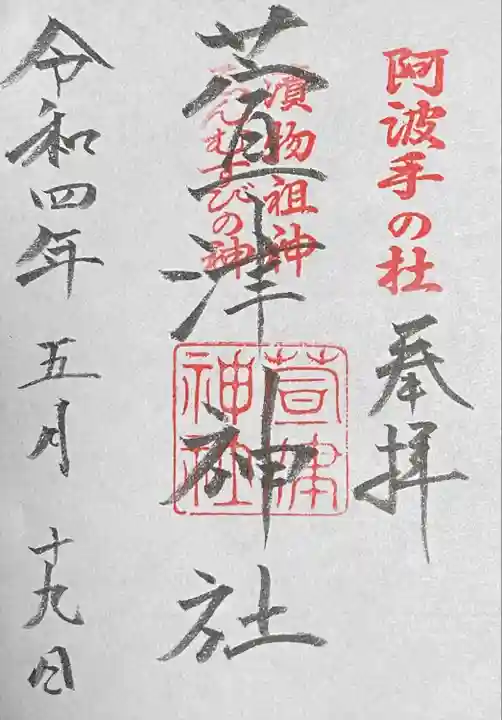 阿波手の杜
奉拝
漬物祖神
えんむすびの神
萱津神社
萱津神社
令和四年 五月 十九日